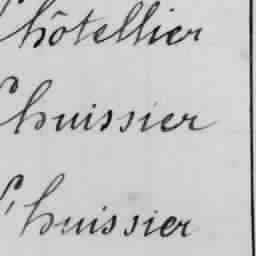 l'hôtellier
l'huissier
l'huissier